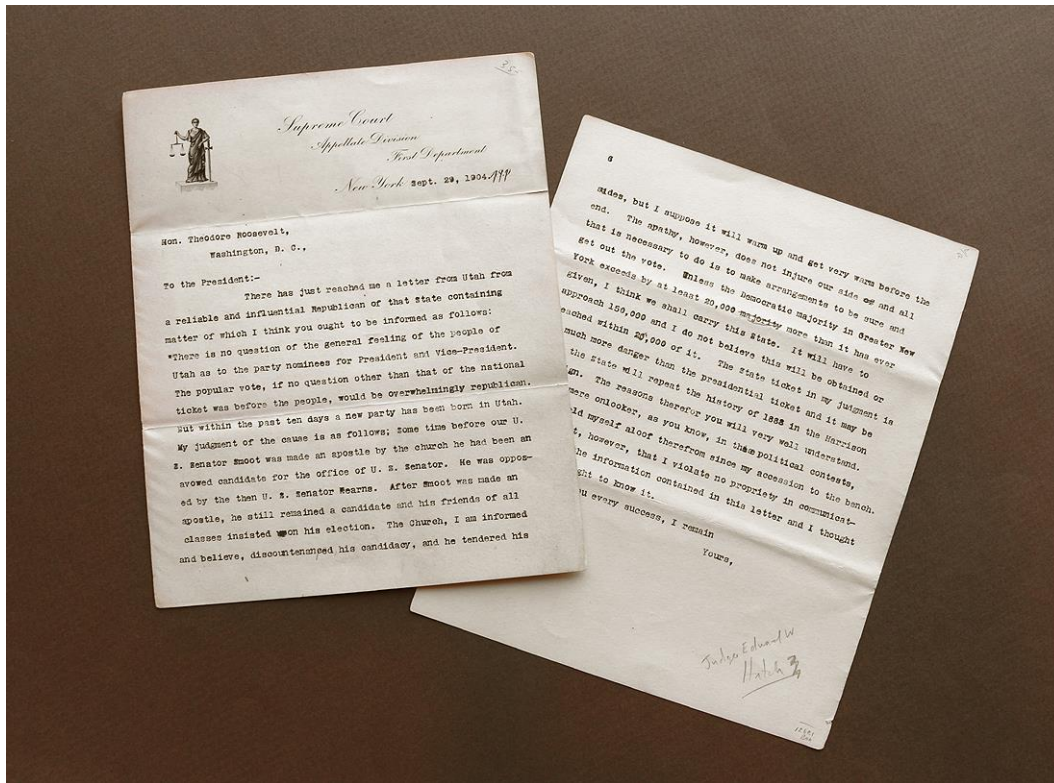 Supreme Court
Appellate Division
First Department
New York Sept. 29, 1904.
Hon. Theodore Roosevelt,
Washington, D. C.,
To the President:-
There has just reached me a letter from Utah from
a reliable and influential Republican of that State containing
matter of which I think you ought to be informed as follows:
"There is no question of the general feeling of the people of
Utah as to the party nominees for President and Vice-President.
The popular vote, if no question other than that of the national
ticket was before the people, would be overwhelmingly republican.
But within the past ten days a new party has been born in Utah.
My judgment of the cause is as follows; Some time before our U.
S. Senator Smoot was made an apostle by the church he had been an
avowed candidate for the office of U. S. Senator. He was oppos-
ed by the then U. S. Senator Kearns. After Smoot was made an
apostle, he still remained a candidate and his friends of all
classes insisted upon his election. The Church, I am informed
and believe, discountenanced his candidacy, and he tendered his
6
sides, but I suppose it will warm up and get very warm before the
end. The apathy, however, does not injure our side and all
that is necessary to do is to make arrangements to be sure and
get out the vote. Unless the Democratic majority in Greater New
York exceeds by at least 20,000 majority more than it has ever
given, I think we shall carry this State. It will have to
approach 150,000 and I do not believe this will be obtained or
eached within 25,000 of it. The State ticket in my judgment is
much more danger than the presidential ticket and it may be
the State will repeat the history of 1888 in the Harrison
gn. The reasons therefor you will very well understand.
mere onlooker, as you know, in these political contests,
ld myself aloof therefrom since my accession to the bench.
t, however, that I violate no propriety in communicat-
he information contained in this letter and I thought
ght to know it.
u every success, I remain
Yours,
Judge Edward W
Hatch